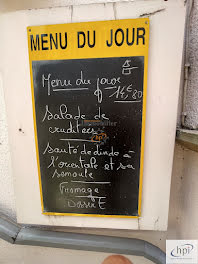 MENU DU JOUR
Menu du jour
14,€80
Salade de
crudités
Sauté de dinde à
l'orientale et sa
semoule
Fromage
Dessert
hpi
hpi